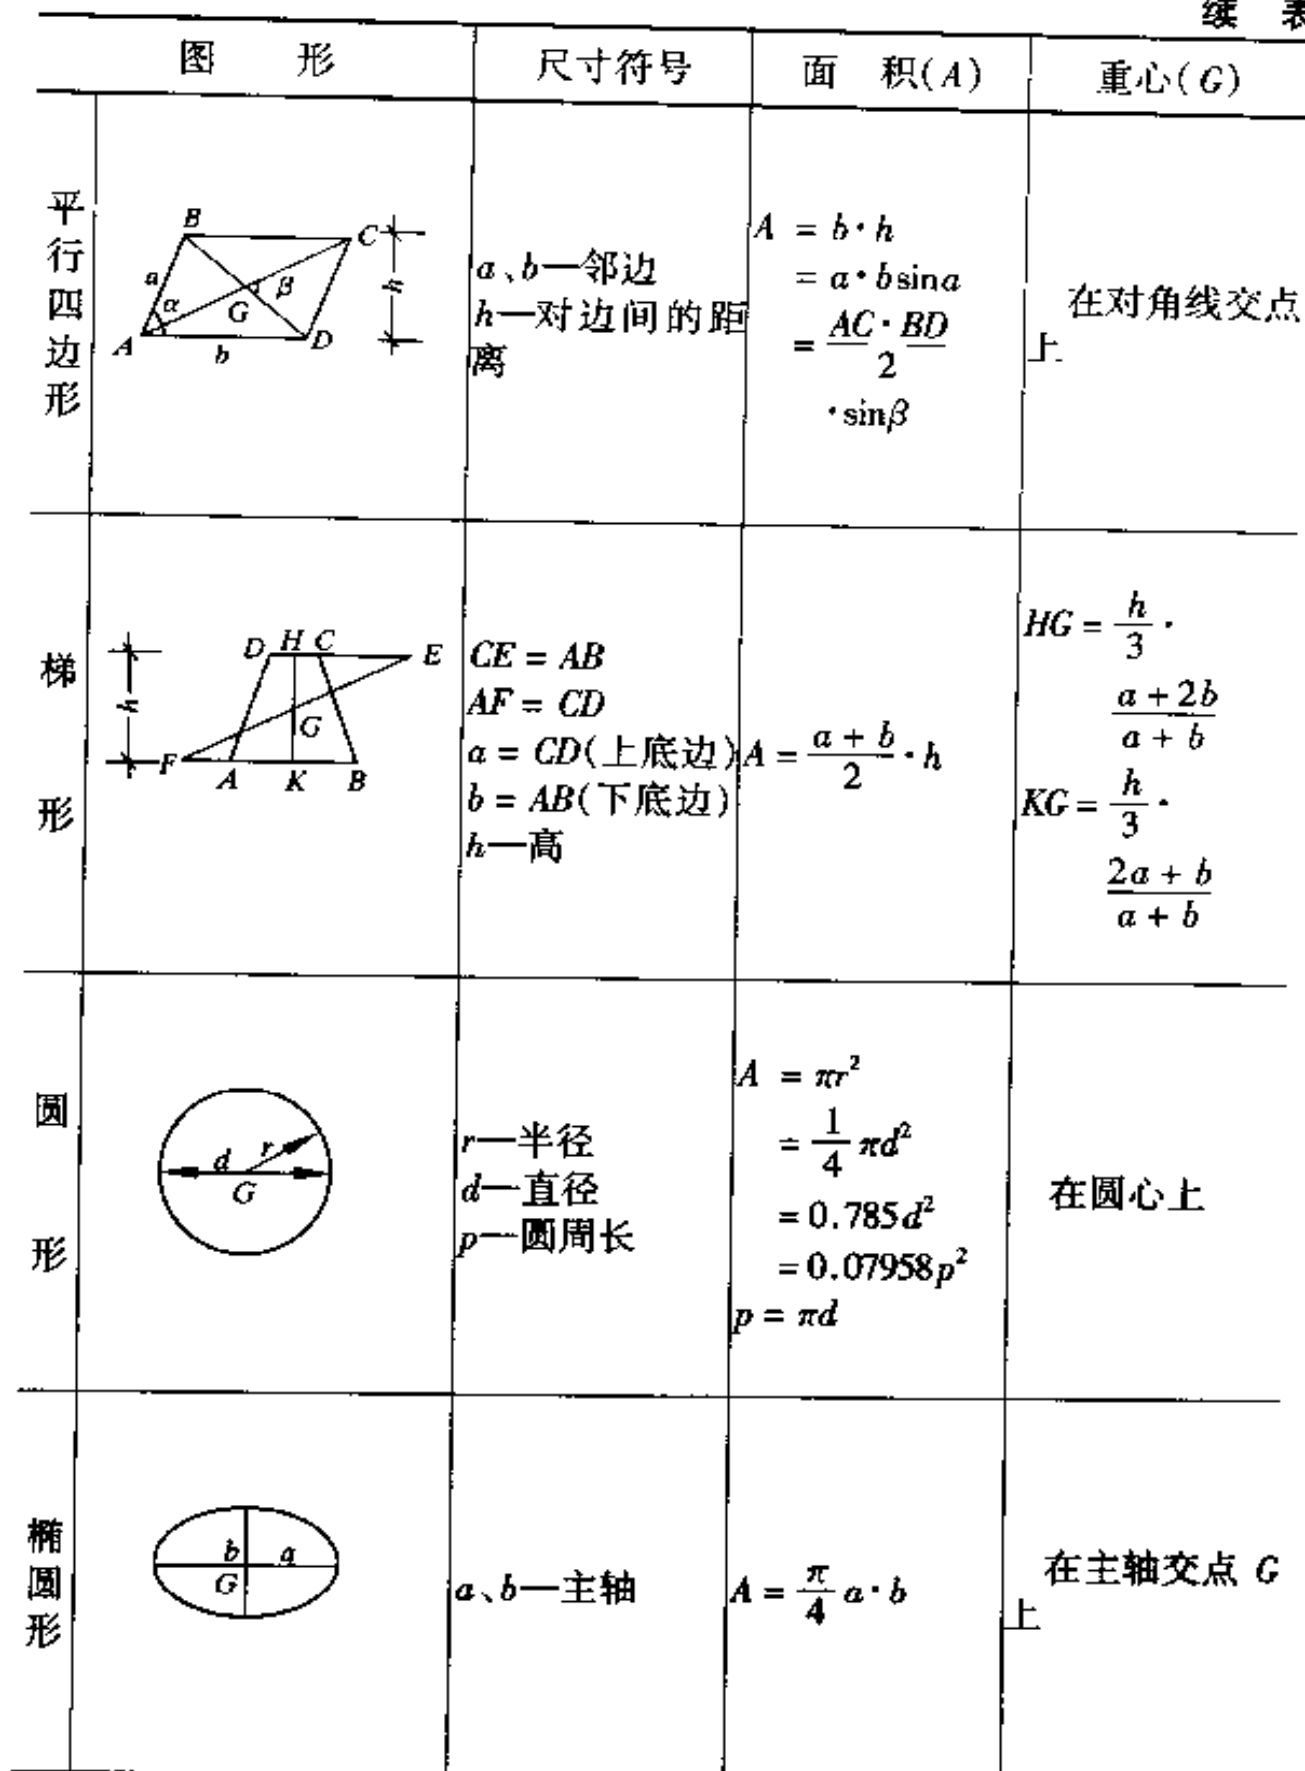 续 表
图 形 尺寸符号 面 积(A) 重心(G)
平行四边形
B
C
a
α
β
G
h
A
b
D
a、b—邻边
h—对边间的距
离
A = b·h
= a·bsina
= AC·BD/2
·sinβ
在对角线交点
上
梯形
D H C
E
h
G
F
A K B
CE = AB
AF = CD
a = CD(上底边)
b = AB(下底边)
h—高
A = (a + b)/2 · h
HG = h/3 ·
(a + 2b)/(a + b)
KG = h/3 ·
(2a + b)/(a + b)
圆形
d r
G
r—半径
d—直径
p—圆周长
A = πr²
= 1/4 πd²
= 0.785d²
= 0.07958p²
p = πd
在圆心上
椭圆形
b a
G
a、b—主轴
A = π/4 a·b
在主轴交点 G
上